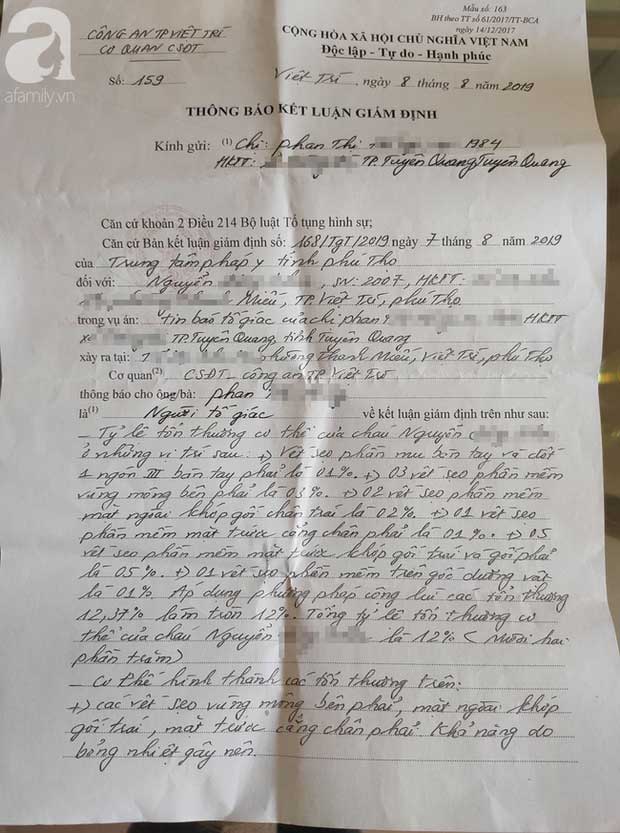 afamily.vn
Mẫu số: 163
BH theo TT số 61/2017/TT-BCA
ngày 14/12/2017
CÔNG AN TP VIỆT TRÌ
CƠ QUAN CSĐT
Số: 159
CỘNG HÒA XÃ HỘI CHỦ NGHĨA VIỆT NAM
Độc lập - Tự do - Hạnh phúc
Việt Trì, ngày 8 tháng 8 năm 2019
THÔNG BÁO KẾT LUẬN GIÁM ĐỊNH
Kính gửi: (1) Chị: Phan Thị 1984
HKTT: TP. Tuyên Quang, Tuyên Quang
Căn cứ khoản 2 Điều 214 Bộ luật Tố tụng hình sự;
Căn cứ Bản kết luận giám định số: 168/TgT/2019 ngày 7 tháng 8 năm 2019
của Trung tâm pháp y tỉnh Phú Thọ
đối với: Nguyễn , SN: 2007, HKTT:
Miếu, TP. Việt Trì, Phú Thọ
trong vụ án: Tin báo tố giác của chị Phan HKTT
TP. Tuyên Quang, tỉnh Tuyên Quang
xảy ra tại: phường Thanh Miếu, Việt Trì, Phú Thọ
Cơ quan(2) CSĐT - công an TP. Việt Trì
thông báo cho ông/bà: Phan
là(1) Người tố giác về kết luận giám định trên như sau:
- Tỷ lệ tổn thương cơ thể của cháu Nguyễn
ở những vị trí sau: +) Vết sẹo phần mu bàn tay và đốt
1 ngón III bàn tay phải là 01%. +) 03 vết sẹo phần mềm
vùng mông bên phải là 03%. +) 02 vết sẹo phần mềm
mặt ngoài khớp gối chân trái là 02%. +) 01 vết sẹo
phần mềm mặt trước cẳng chân phải là 01%. +) 05
vết sẹo phần mềm mặt trước khớp gối trái và gối phải
là 05%. +) 01 vết sẹo phần mềm trên gốc dương vật
là 01%. Áp dụng phương pháp cộng lùi các tổn thương
12,37% làm tròn 12%. Tổng tỷ lệ tổn thương cơ
thể của cháu Nguyễn là 12% (Mười hai
phần trăm)
- Cơ thế hình thành các tổn thương trên:
+) các vết sẹo vùng mông bên phải, mặt ngoài khớp
gối trái, mặt trước cẳng chân phải. Khả năng do
bỏng nhiệt gây nên.